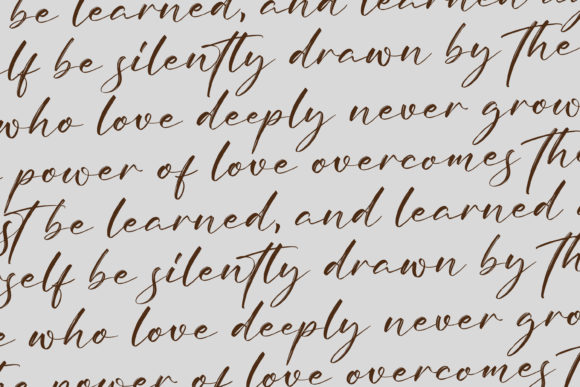 be learned, and learned ag
self be silently drawn by the
who love deeply never grow
power of love overcomes the
st be learned, and learned
rself be silently drawn by the
e who love deeply never gro
the power of love overcomes the